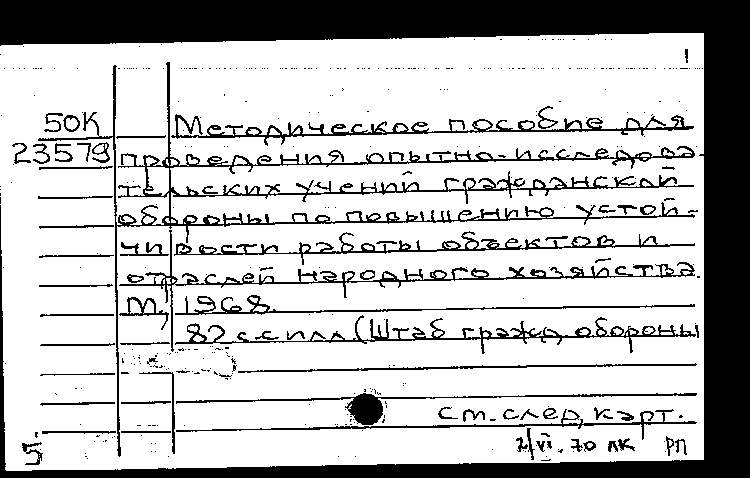 1
50К Методическое пособие для
23579 проведения опытно-исследова-
тельских учений гражданской
обороны по повышению устой-
чивости работы объектов и
отраслей народного хозяйства.
М., 1968.
82 с. с илл. (Штаб гражд. обороны
см. след. карт.
2/VI.70 ЛК РП
5.